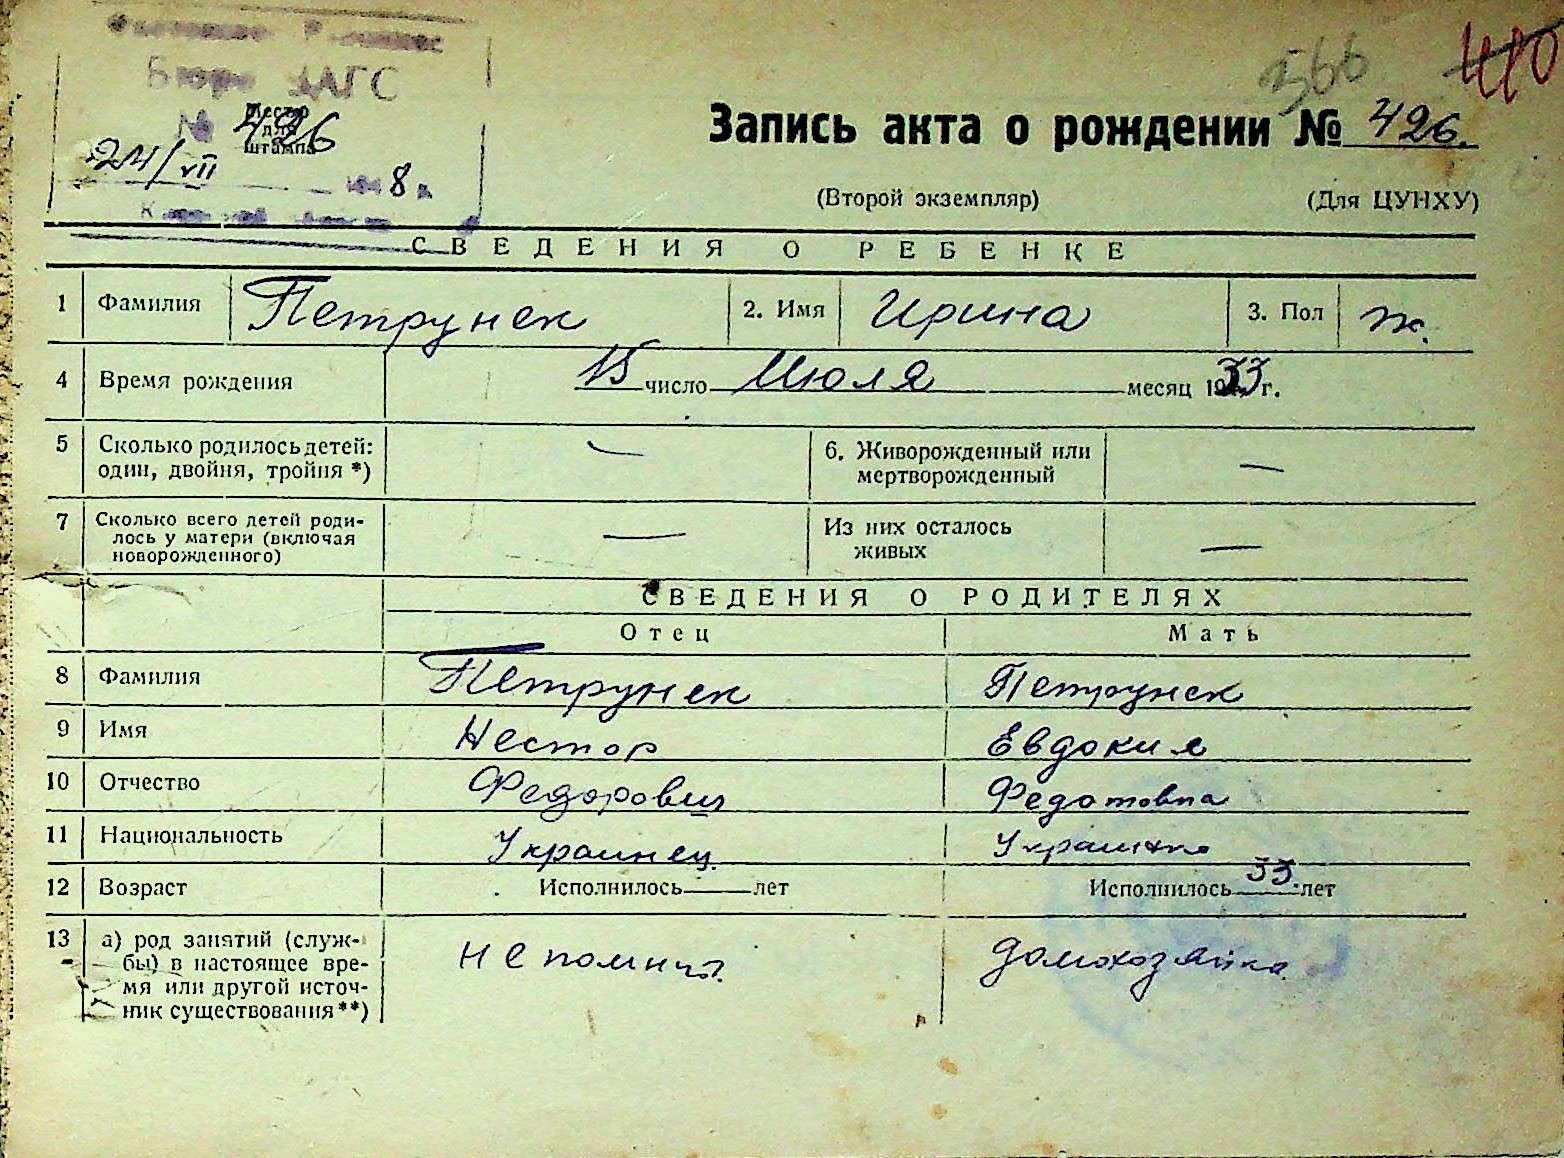 Бюро ЗАГС
№ 426
Место
для
штампа
24/VII 8 г.
566
410
Запись акта о рождении № 426.
(Второй экземпляр) (Для ЦУНХУ)
СВЕДЕНИЯ О РЕБЕНКЕ
1 Фамилия Петрунек 2. Имя Ирина 3. Пол ж.
4 Время рождения 15 число Июля месяц 1933 г.
5 Сколько родилось детей: — 6. Живорожденный или —
один, двойня, тройня *) мертворожденный
7 Сколько всего детей роди- — Из них осталось —
лось у матери (включая живых
новорожденного)
СВЕДЕНИЯ О РОДИТЕЛЯХ
Отец Мать
8 Фамилия Петрунек Петрунек
9 Имя Нестор Евдокия
10 Отчество Федорович Федотовна
11 Национальность Украинец. Украинка
12 Возраст Исполнилось — лет Исполнилось 33 лет
13 а) род занятий (служ- домохозяйка
бы) в настоящее вре-
мя или другой источ-
ник существования **)